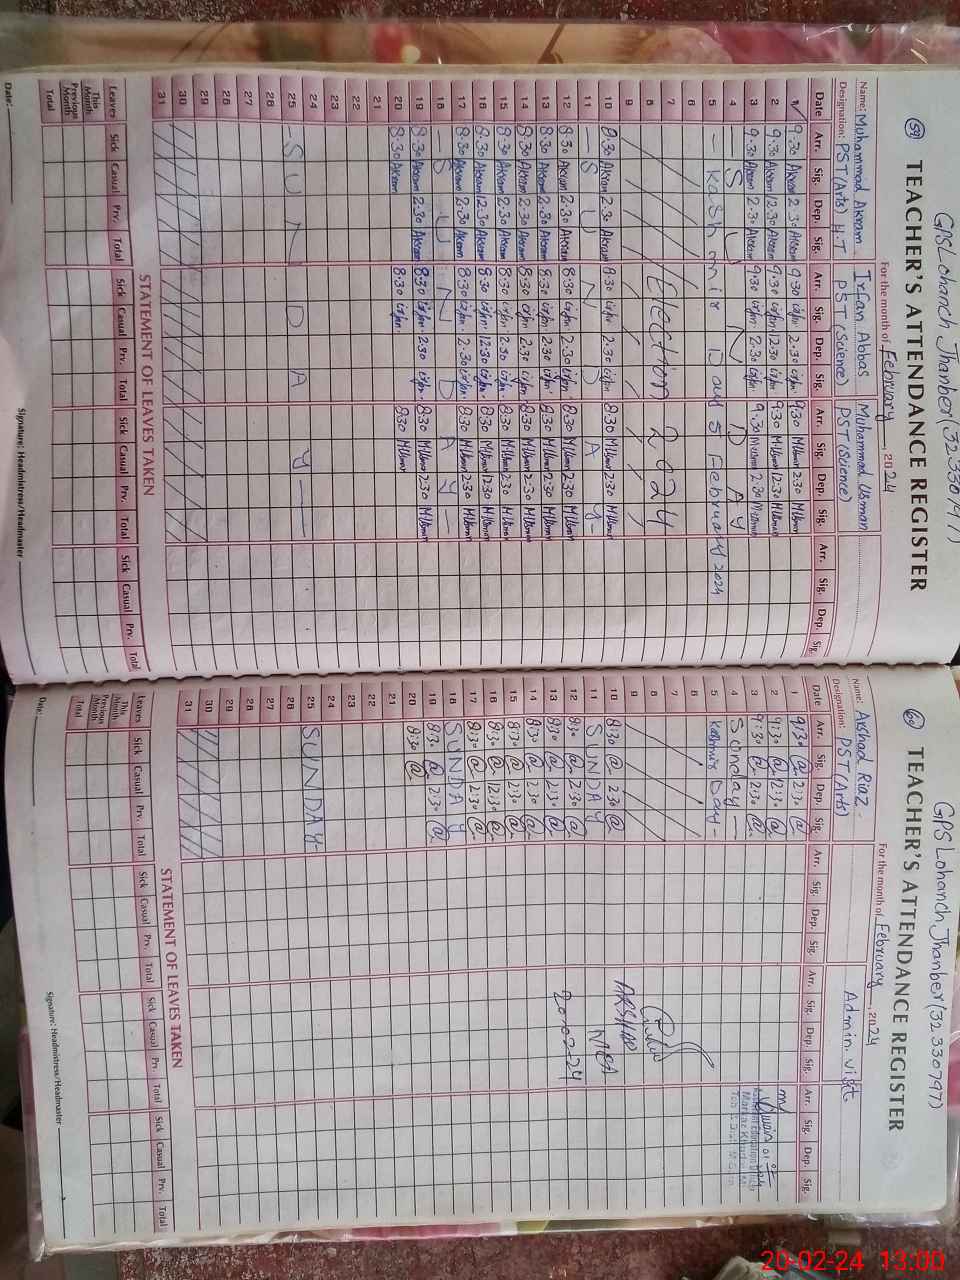 GPS Lohanch Jhanber (32330797)
59 TEACHER'S ATTENDANCE REGISTER
For the month of February, 2024
Name: Muhammad Akram Irfan Abbas Muhammad Usman
Designation: PST (Arts) H.T PST (Science) PST (Science)
Date Arr. Sig. Dep. Sig. Arr. Sig. Dep. Sig. Arr. Sig. Dep. Sig. Arr. Sig. Dep. Sig.
1 9:30 Akram 2:30 Akram 9:30 2:30 9:30 2:30
2 9:30 Akram 12:30 Akram 9:30 12:30 9:30 12:30
3 9:30 Akram 2:30 Akram 9:30 2:30 9:30 2:30
4 - S U N D A Y
5 - Kashmir Day 5 February 2024
6
7
8 Election 2024
9
10 8:30 Akram 2:30 Akram 8:30 2:30 8:30 2:30
11 - S U N D A Y -
12 8:30 Akram 2:30 Akram 8:30 2:30 8:30 2:30
13 8:30 Akram 2:30 Akram 8:30 2:30 8:30 2:30
14 8:30 Akram 2:30 Akram 8:30 2:30 8:30 2:30
15 8:30 Akram 2:30 Akram 8:30 2:30 8:30 2:30
16 8:30 Akram 12:30 Akram 8:30 12:30 8:30 12:30
17 8:30 Akram 2:30 Akram 8:30 2:30 8:30 2:30
18 - S U N D A Y -
19 8:30 Akram 2:30 Akram 8:30 2:30 8:30 2:30
20 8:30 Akram 8:30 8:30
21
22
23
24
25 - S U N D A Y -
26
28
29
30
31
STATEMENT OF LEAVES TAKEN
Leaves Sick Casual Prv. Total Sick Casual Prv. Total Sick Casual Prv. Total Sick Casual Prv. Total
This Month
Previous Month
Total
Date: Signature: Headmistress/Headmaster
GPS Lohanch Jhanber (32330797)
60 TEACHER'S ATTENDANCE REGISTER
For the month of February, 2024
Name: Arshad Riaz Admin. visit
Designation: PST (Arts)
Date Arr. Sig. Dep. Sig. Arr. Sig. Dep. Sig. Arr. Sig. Dep. Sig. Arr. Sig. Dep. Sig.
1 9:30 2:30
2 9:30 12:30
3 9:30 2:30
4 Sunday -
5 Kashmir Day -
6
7
8
9
10 8:30 2:30
11 SUNDAY
12 8:30 2:30
13 8:30 2:30
14 8:30 2:30
15 8:30 2:30
16 8:30 12:30
17 8:30 2:30
18 SUNDAY
19 8:30 2:30
20 8:30
21
22
23
24
25 SUNDAY
26
27
28
29
30
31
ARSHAD
MEA
20-02-24
STATEMENT OF LEAVES TAKEN
Leaves Sick Casual Prv. Total Sick Casual Prv. Total Sick Casual Prv. Total Sick Casual Prv. Total
This Month
Previous Month
Total
Date: Signature: Headmistress/Headmaster
20-02-24 13:00